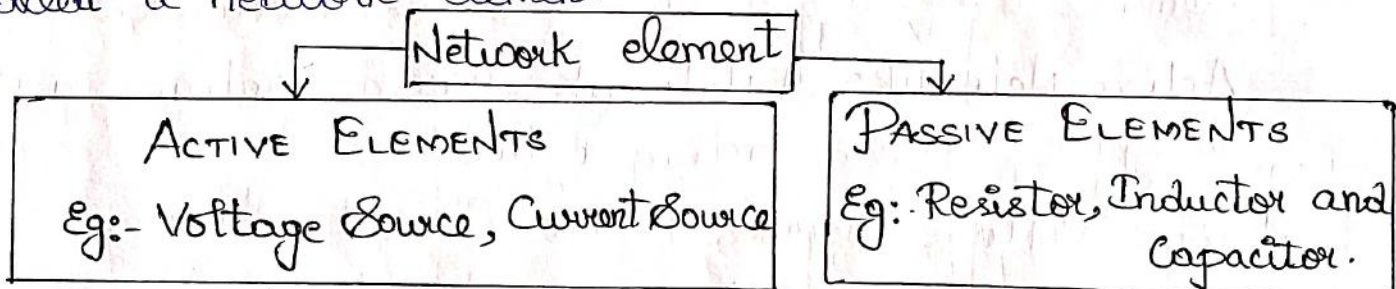 a network element
Network element
ACTIVE ELEMENTS
Eg:- Voltage Source, Current Source
PASSIVE ELEMENTS
Eg: Resistor, Inductor and
Capacitor.